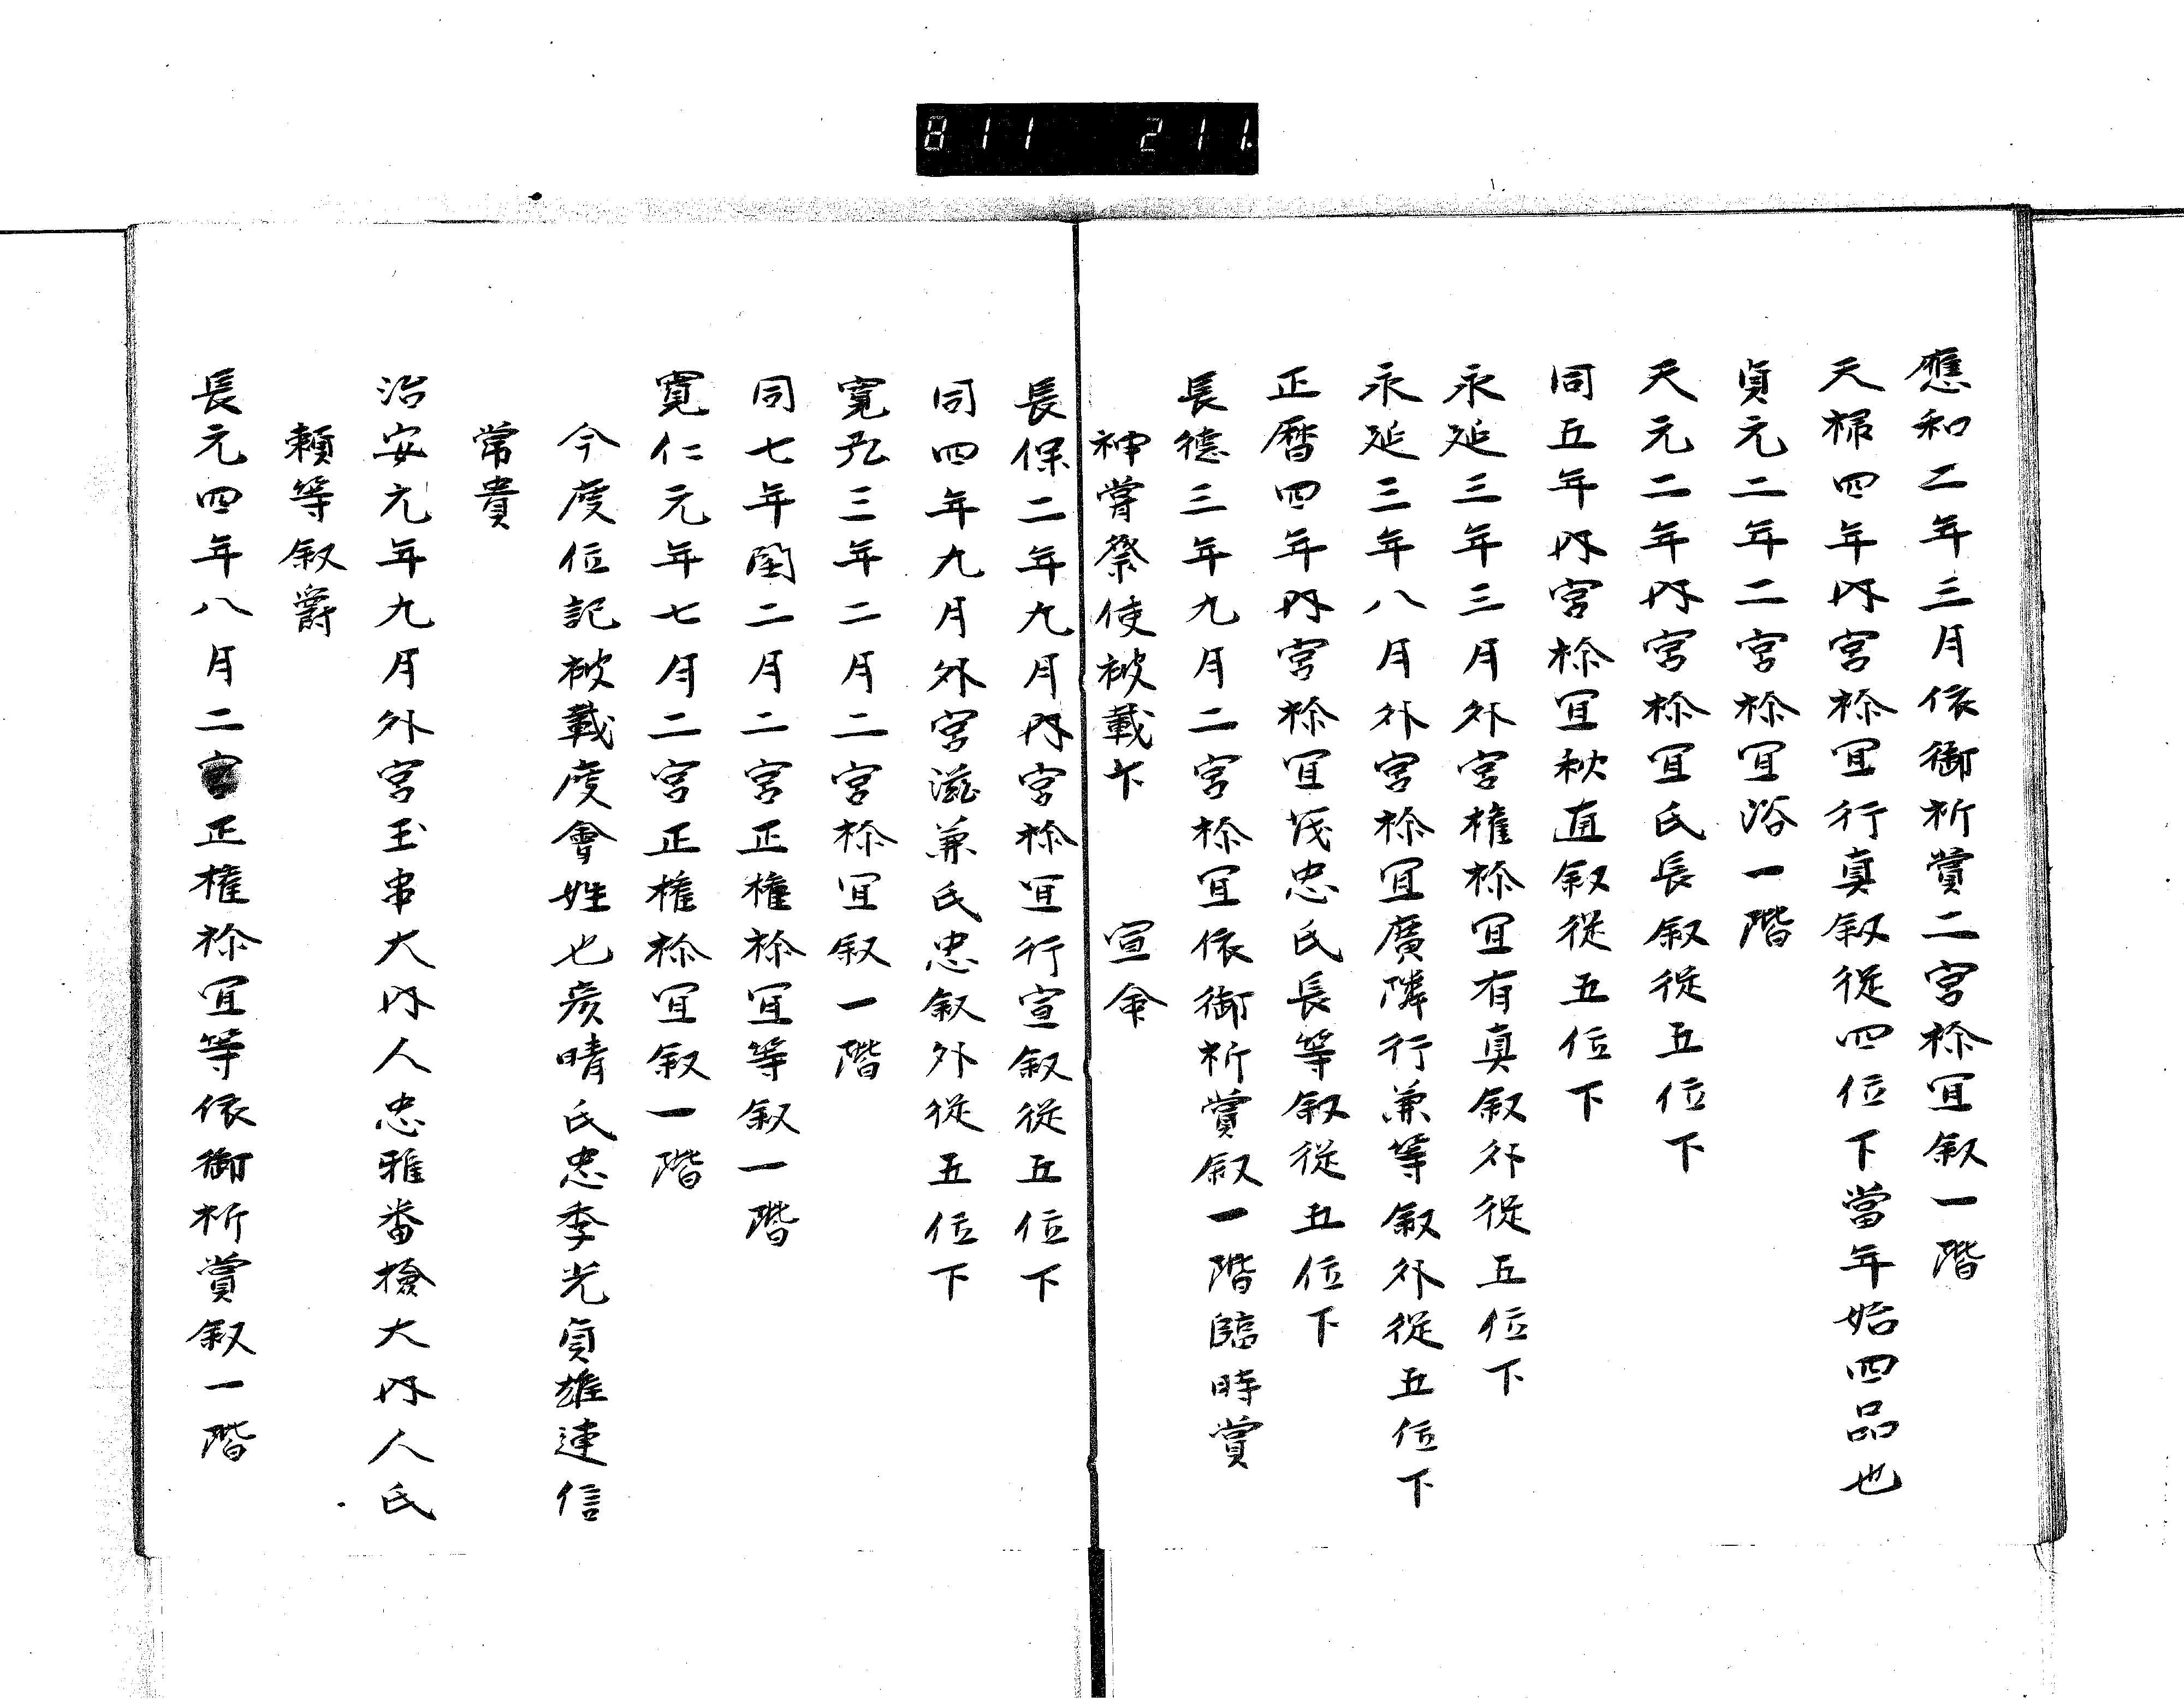 811 211.
應和二年三月依御祈賞二宮祢冝叙一階
天禄四年内宮祢冝行真叙従四位下當年始四品也
貞元二年二宮祢冝浴一階
天元二年内宮祢冝氏長叙従五位下
同五年内宮祢冝秋直叙従五位下
永延三年三月外宮権祢冝有真叙外従五位下
永延三年八月外宮祢冝廣隣行兼等叙外従五位下
正暦四年内宮祢冝茂忠氏長等叙従五位下
長徳三年九月二宮祢冝依御祈賞叙一階臨時賞
神甞祭使被載下 宣命
長保二年九月内宮祢冝行宣叙従五位下
同四年九月外宮滋兼氏忠叙外従五位下
寛弘三年二月二宮祢冝叙一階
同七年閏二月二宮正権祢冝等叙一階
寛仁元年七月二宮正権祢冝叙一階
今度位記被載度會姓也彦晴氏忠季光貞雄連信
常貴
治安元年九月外宮玉串大内人忠雅番撿大内人氏
頼等叙爵
長元四年八月二宮正権祢冝等依御祈賞叙一階